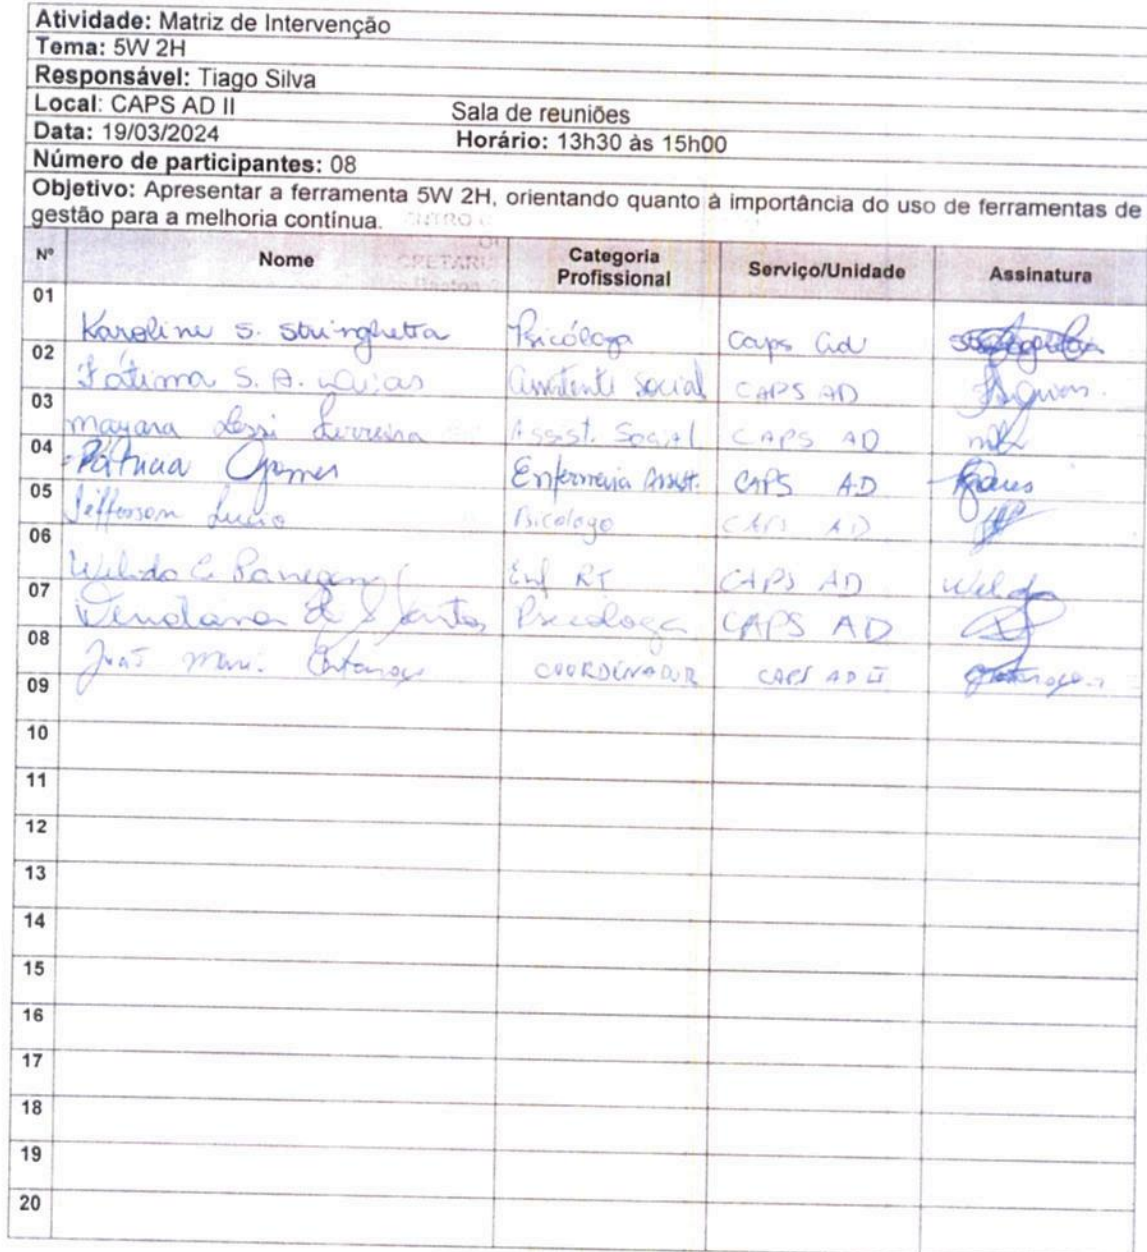 Atividade: Matriz de Intervenção
Tema: 5W 2H
Responsável: Tiago Silva
Local: CAPS AD II Sala de reuniões
Data: 19/03/2024 Horário: 13h30 às 15h00
Número de participantes: 08
Objetivo: Apresentar a ferramenta 5W 2H, orientando quanto à importância do uso de ferramentas de
gestão para a melhoria contínua.
Nº Nome Categoria Profissional Serviço/Unidade Assinatura
01 Karoline S. Stringhetta Psicóloga Caps ad
02 Fátima S. A. Assistente Social CAPS AD
03 Mayara Ferreira Assist. Social CAPS AD
04 Patricia Gomes Enfermeira Assist. CAPS AD
05 Jefferson Lucio Psicologo CAPS AD
06 C. Enf RT CAPS AD
07 Santos Psicologa CAPS AD
08 COORDENADOR CAPS AD II
09
10
11
12
13
14
15
16
17
18
19
20